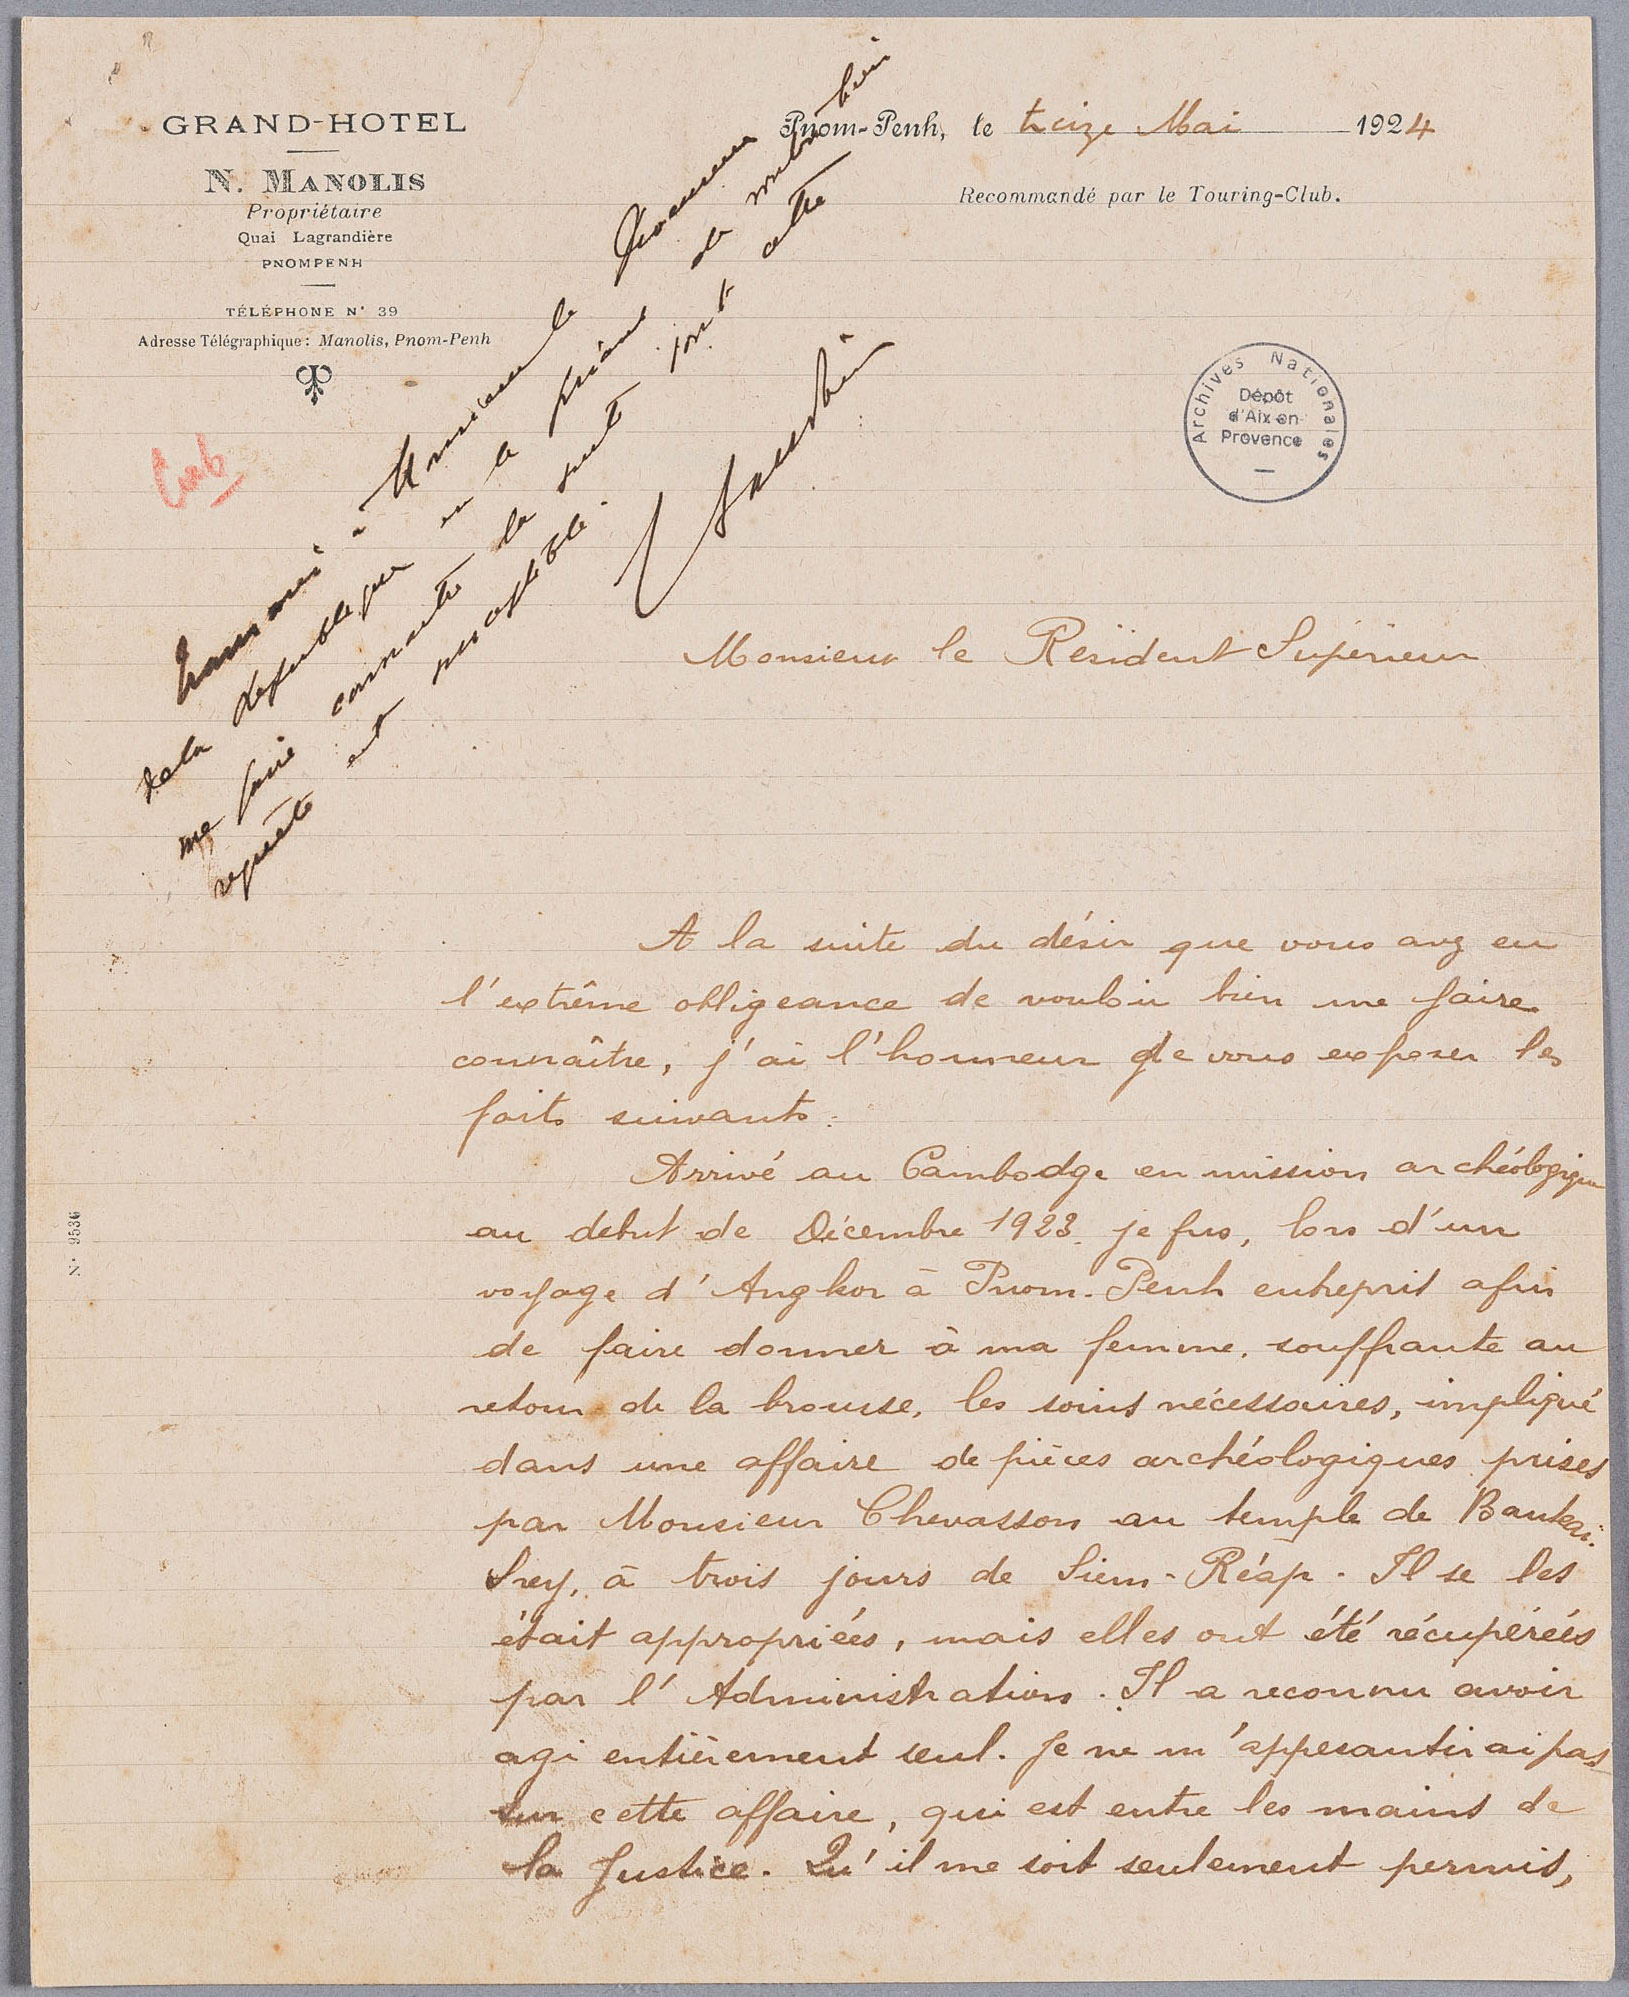 GRAND-HOTEL
N. MANOLIS
Propriétaire
Quai Lagrandière
PNOMPENH
TÉLÉPHONE N° 39
Adresse Télégraphique : Manolis, Pnom-Penh
Pnom-Penh, le treize Mai 1924
Recommandé par le Touring-Club.
Archives Nationales
Dépôt
d'Aix-en-
Provence
Transmis à Monsieur le Procureur
de la République en le priant de vouloir bien
me faire connaître la suite dont cette
requête est susceptible.
Monsieur le Résident Supérieur
A la suite du désir que vous avez eu
l'extrême obligeance de vouloir bien me faire
connaître, j'ai l'honneur de vous exposer les
faits suivants :
Arrivé au Cambodge en mission archéologique
au début de Décembre 1923. je fus, lors d'un
voyage d'Angkor à Pnom-Penh entrepris afin
de faire donner à ma femme, souffrante au
retour de la brousse, les soins nécessaires, impliqué
dans une affaire de pièces archéologiques prises
par Monsieur Chevasson au temple de Banteai-
Srey, à trois jours de Siem-Réap. Il se les
était appropriées, mais elles ont été récupérées
par l'Administration. Il a reconnu avoir
agi entièrement seul. Je ne m'appesantirai pas
sur cette affaire, qui est entre les mains de
la Justice. Qu'il me soit seulement permis,
N° 9536